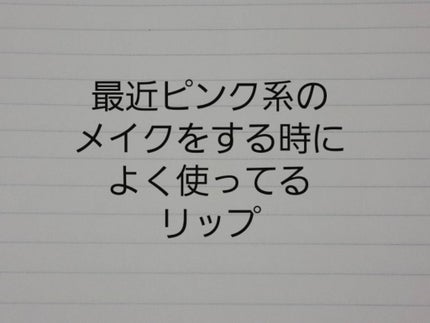 最近ピンク系の
メイクをする時に
よく使ってる
リップ